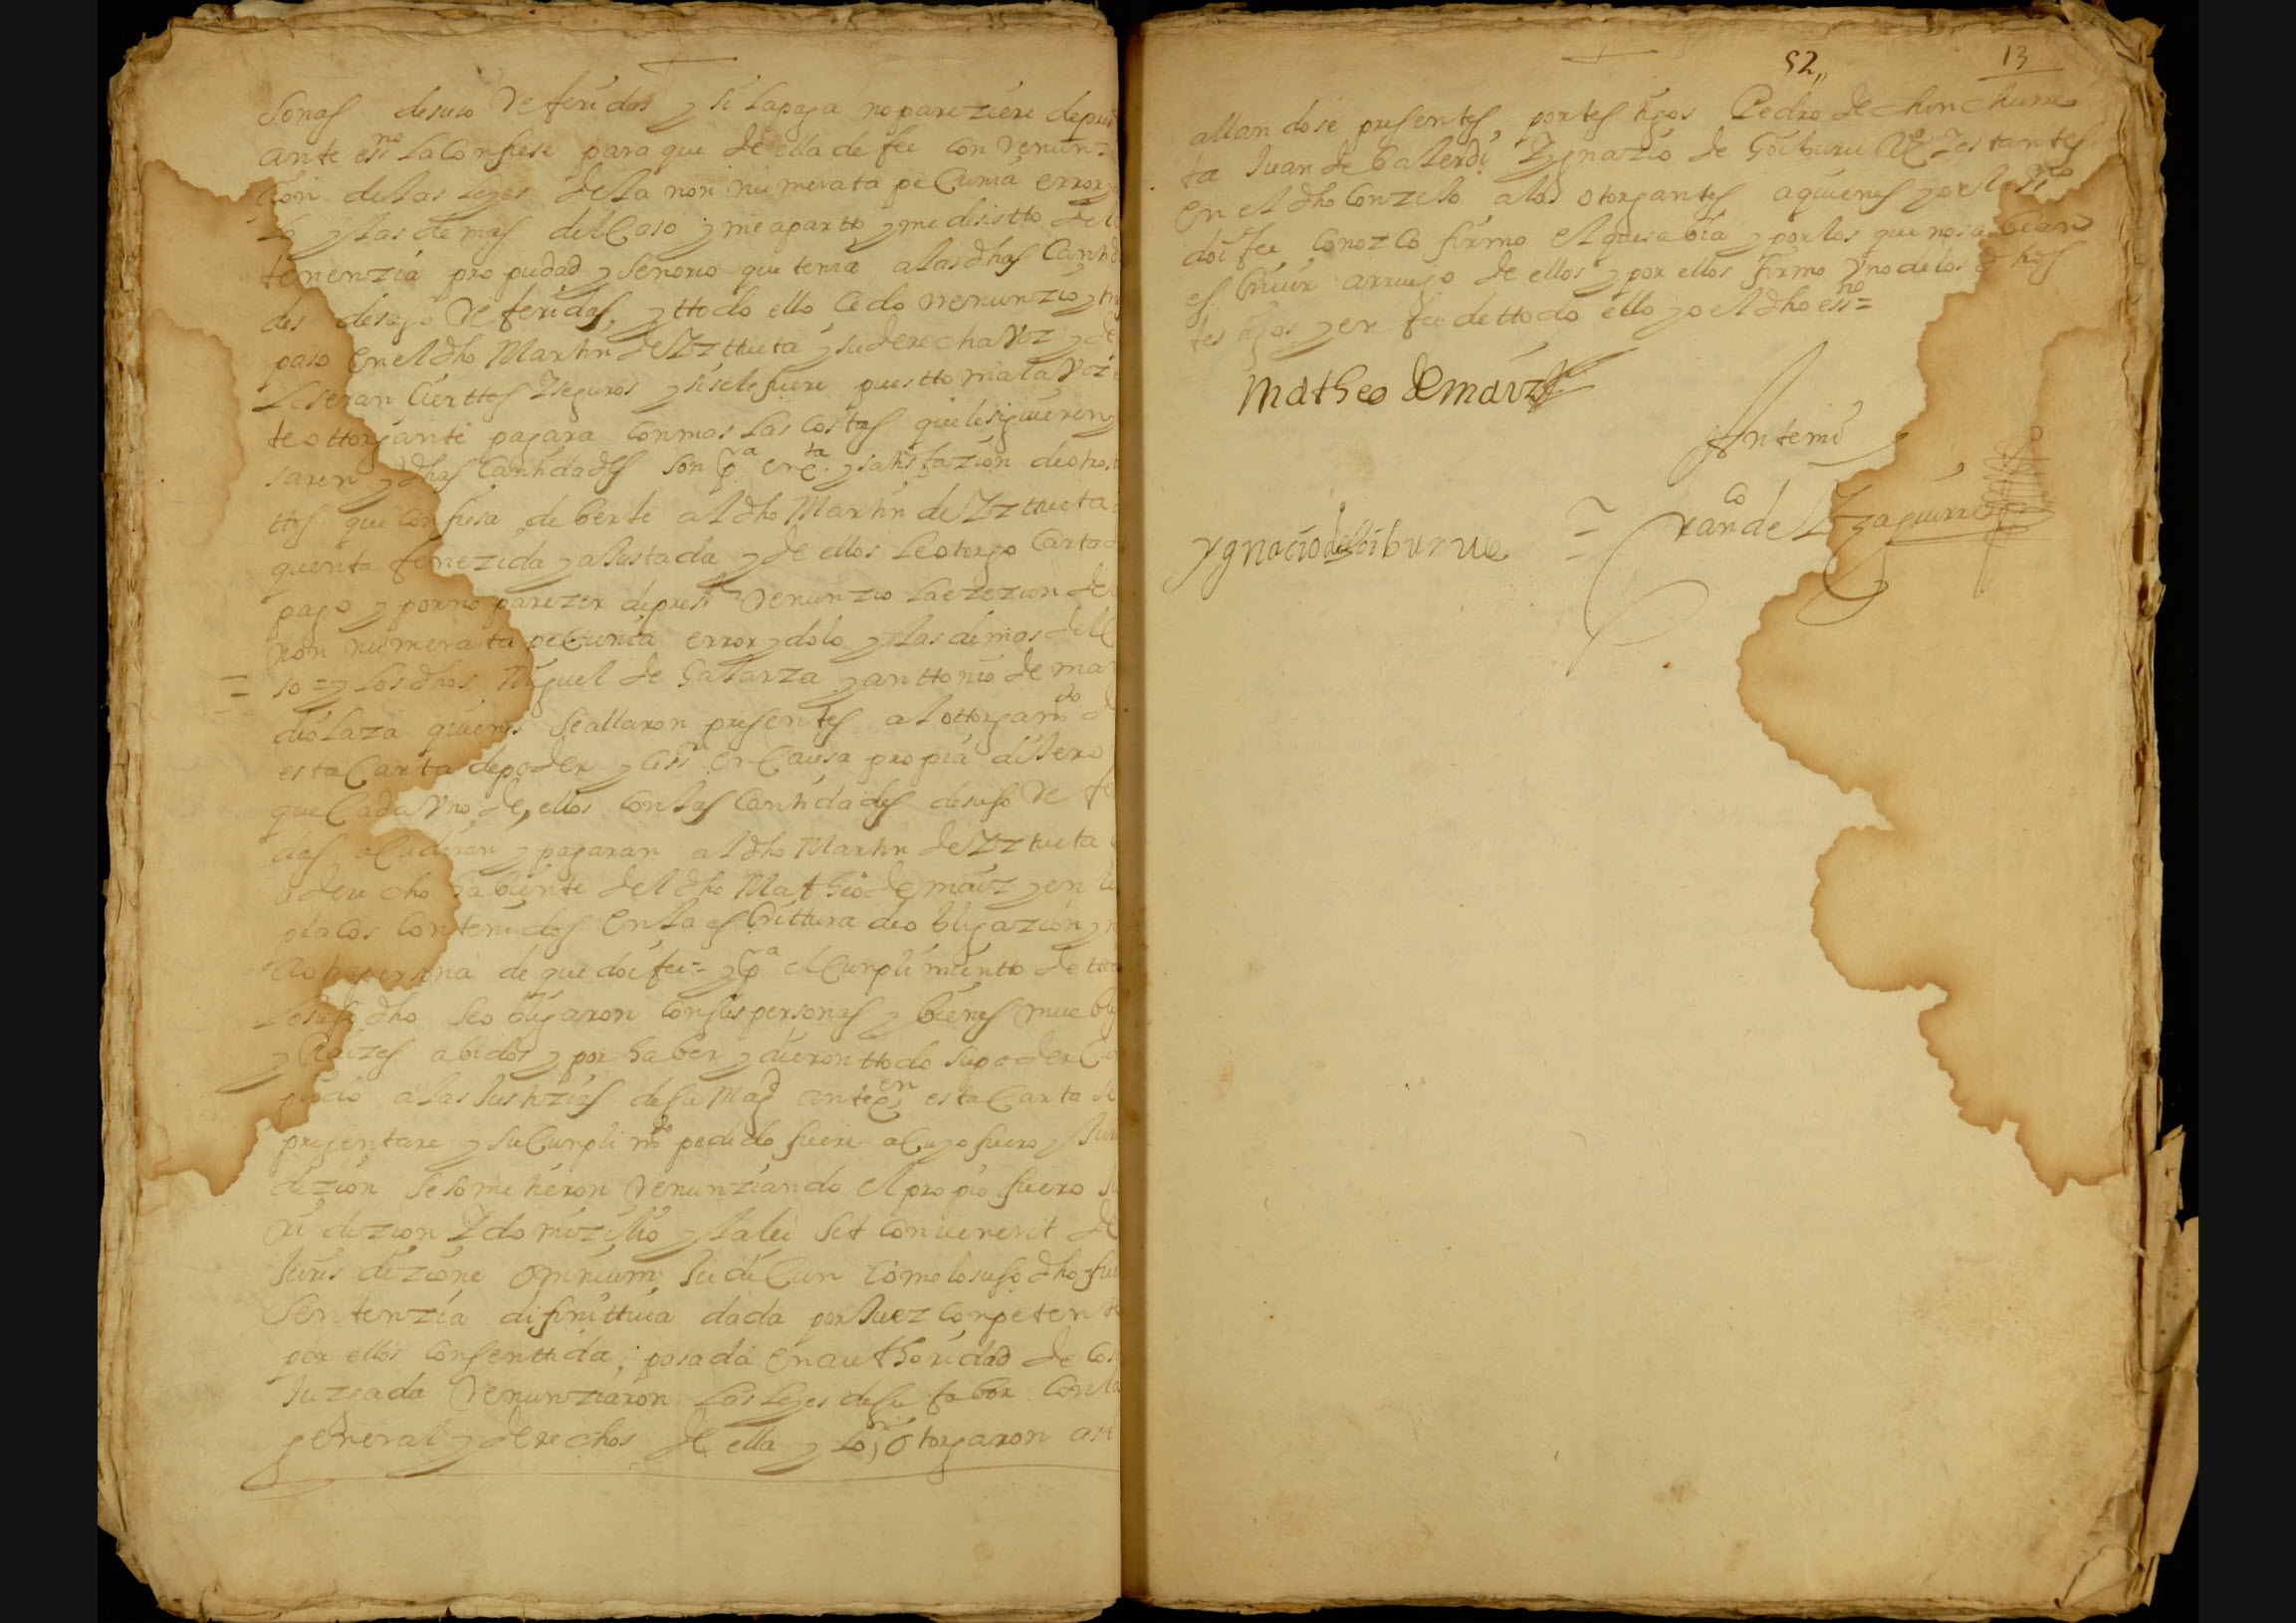 sonas desuso Referidas y si la paga no pareziere de pres
ante essno la Confiese para que de ella de fee con Renunzia
cion de las leyes de la non numerata peCunia error y do
lo y las demas del Caso y me apartto y me desistto de l
tenenzia propiedad y senorio que tenia a las dhas Cantida
des desuso Referidas, y ttodo ello Cedo Renunzio y tras
paso en el dho Martin de Yzttueta y su derecha Voz y de
le seran Ciertos y seguros y si se le fuere puestto mala Voz
te ottorgante pagara con mas las costas que le siguieren y
saren y dhas Cantidades son pa en qta y satisfazion de otros
ttes que confiesa deberle al dho Martin de Yzttueta
quenta fenezida y aJustada y de ellos le otorgo Carta de
pago y por no parezer de prestte Renunzio la ezezion de l
non numerata peCunia error y dolo y las demas del Ca
so = y los dhos Miguel de Galarza y anttonio de ma
diolaza quienes se allaron presentes al ottorgamto d
esta Carta de poder y cess en Causa propia diJero
que Cada Vno de ellos con las Cantidades desuso Refe
das aCudiran y pagaran al dho Martin de Yztueta
o derecho habiente del dho Matheo de mauz y en l
plaços Contenidos en la esCrittura de obligazion y n
persona de que doi fee = y pa el Cunplimientto de tto
lo suso dho se obligaron con sus personas y bienes muebles
y Raizes abidos y por haber y dieron ttodo su poder Cun
plido a las Justizias de su Magd ante qen esta Carta se
presentare y su Cunplimto pedido fuere a Cuyo fuero y Juris
dizion se sometieron Renunziando el propio fuero Ju
ri dizion y domizilio y la lei sit convenerit de
Juris dizione omnium Judicun como lo suso dho fue
sentenzia difinittiua dada por Juez conpetente
por ellos consenttida, pasada en authoridad de cosa
Juzgada Renunziaron las leyes de su fabor con la
general y derechos de ella y lo otorgaron asi
52,,
13
allandose presentes, por testigos Pedro de chinchurre
ta Juan de balerdi Ygnazio de Goiburu Vos y estantes
en el dho Conzejo a los otorgantes a quienes yo el essno
doi fee Conozco firmo el que sabia y por los que no sabian
esCriuir a rruego de ellos y por ellos firmo Vno de los dhos
testigos y en fee de ttodo ello yo el dho essno =
Matheo de mauz
Antemi
ygnacio de Goiburue = Franco de Yzaguirre